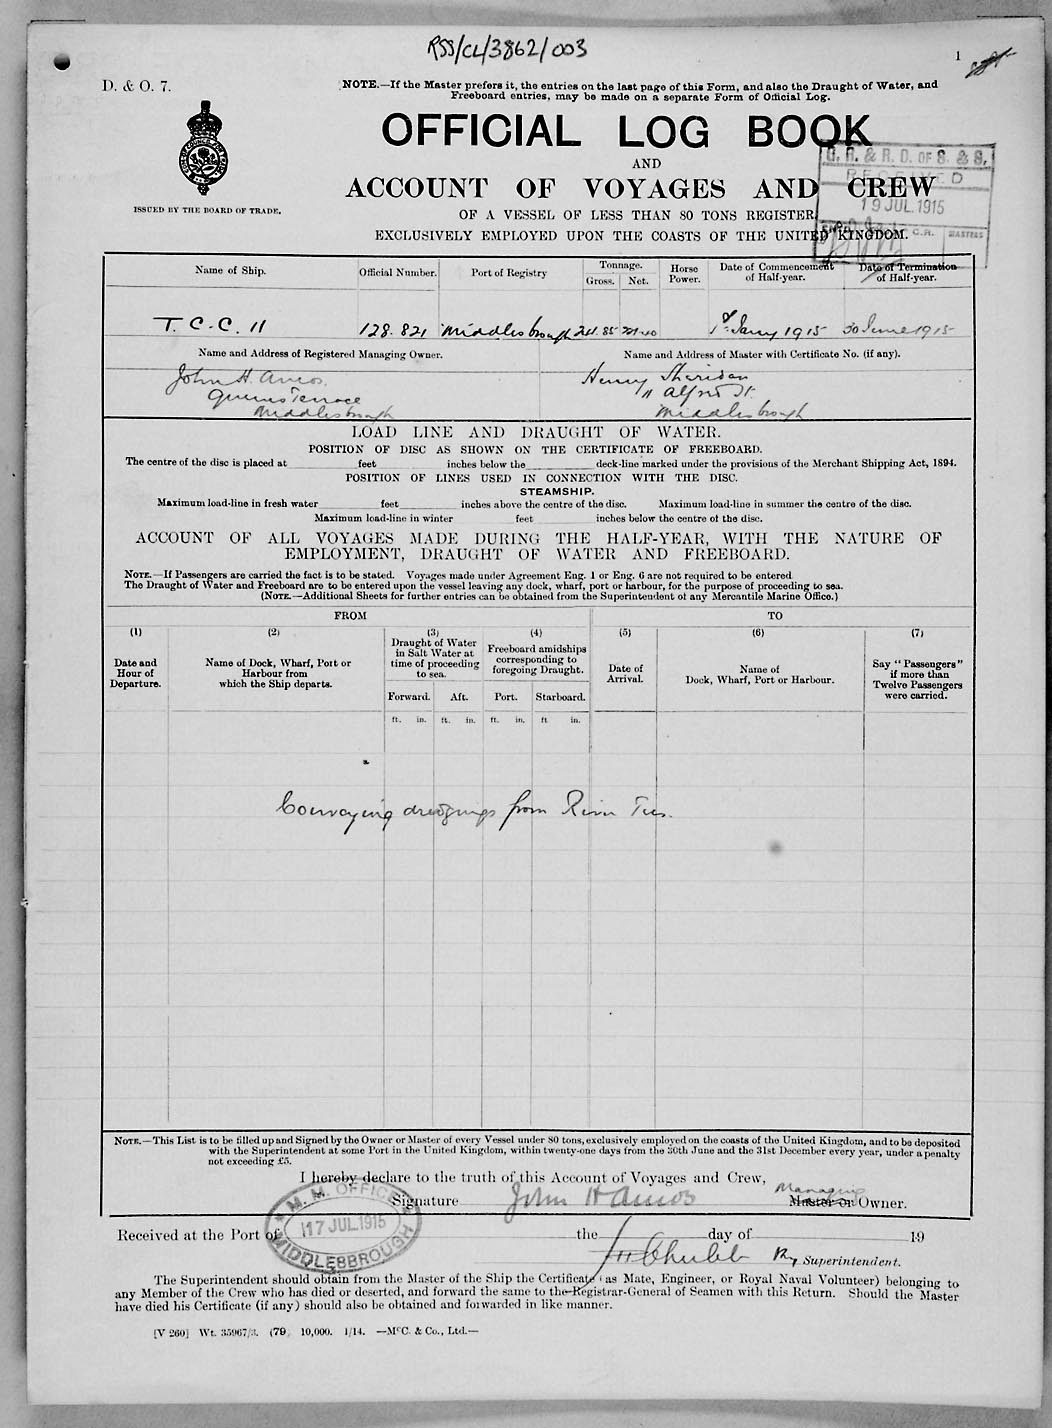 RSS/CL/3862/003
1
D. & O. 7.
NOTE.—If the Master prefers it, the entries on the last page of this Form, and also the Draught of Water, and
Freeboard entries, may be made on a separate Form of Official Log.
OFFICIAL LOG BOOK
AND
ACCOUNT OF VOYAGES AND CREW
OF A VESSEL OF LESS THAN 80 TONS REGISTER,
EXCLUSIVELY EMPLOYED UPON THE COASTS OF THE UNITED KINGDOM.
ISSUED BY THE BOARD OF TRADE.
G. R. & R. O. OF S. & S.
RECEIVED
19 JUL. 1915
C.R. MASTERS
Name of Ship. Official Number. Port of Registry Tonnage. Gross. Net. Horse Power. Date of Commencement of Half-year. Date of Termination of Half-year.
T. C. C. 11 128.821 Middlesbrough 1st Jany 1915 30 June 1915
Name and Address of Registered Managing Owner. Name and Address of Master with Certificate No. (if any).
John H. Amos. Henry Sheridan
Queens Terrace 11 Alfred St.
Middlesbrough Middlesbrough
LOAD LINE AND DRAUGHT OF WATER.
POSITION OF DISC AS SHOWN ON THE CERTIFICATE OF FREEBOARD.
The centre of the disc is placed at feet inches below the deck-line marked under the provisions of the Merchant Shipping Act, 1894.
POSITION OF LINES USED IN CONNECTION WITH THE DISC.
STEAMSHIP.
Maximum load-line in fresh water feet inches above the centre of the disc. Maximum load-line in summer the centre of the disc.
Maximum load-line in winter feet inches below the centre of the disc.
ACCOUNT OF ALL VOYAGES MADE DURING THE HALF-YEAR, WITH THE NATURE OF
EMPLOYMENT, DRAUGHT OF WATER AND FREEBOARD.
NOTE.—If Passengers are carried the fact is to be stated. Voyages made under Agreement Eng. 1 or Eng. 6 are not required to be entered
The Draught of Water and Freeboard are to be entered upon the vessel leaving any dock, wharf, port or harbour, for the purpose of proceeding to sea.
(NOTE.—Additional Sheets for further entries can be obtained from the Superintendent of any Mercantile Marine Office.)
FROM TO
(1) (2) (3) (4) (5) (6) (7)
Date and Hour of Departure. Name of Dock, Wharf, Port or Harbour from which the Ship departs. Draught of Water in Salt Water at time of proceeding to sea. Freeboard amidships corresponding to foregoing Draught. Date of Arrival. Name of Dock, Wharf, Port or Harbour. Say "Passengers" if more than Twelve Passengers were carried.
Forward. Aft. Port. Starboard.
ft. in. ft. in. ft. in. ft in.
Conveying dredgings from River Tees.
NOTE.—This List is to be filled up and Signed by the Owner or Master of every Vessel under 80 tons, exclusively employed on the coasts of the United Kingdom, and to be deposited
with the Superintendent at some Port in the United Kingdom, within twenty-one days from the 30th June and the 31st December every year, under a penalty
not exceeding £5.
I hereby declare to the truth of this Account of Voyages and Crew,
Signature John H Amos Managing Master or Owner.
M. M. OFFICE
17 JUL 1915
MIDDLESBROUGH
Received at the Port of the day of 19
Superintendent.
The Superintendent should obtain from the Master of the Ship the Certificate (as Mate, Engineer, or Royal Naval Volunteer) belonging to
any Member of the Crew who has died or deserted, and forward the same to the Registrar-General of Seamen with this Return. Should the Master
have died his Certificate (if any) should also be obtained and forwarded in like manner.
[V 260] Wt. 35967/3. (79 10,000. 1/14. —McC. & Co., Ltd.—